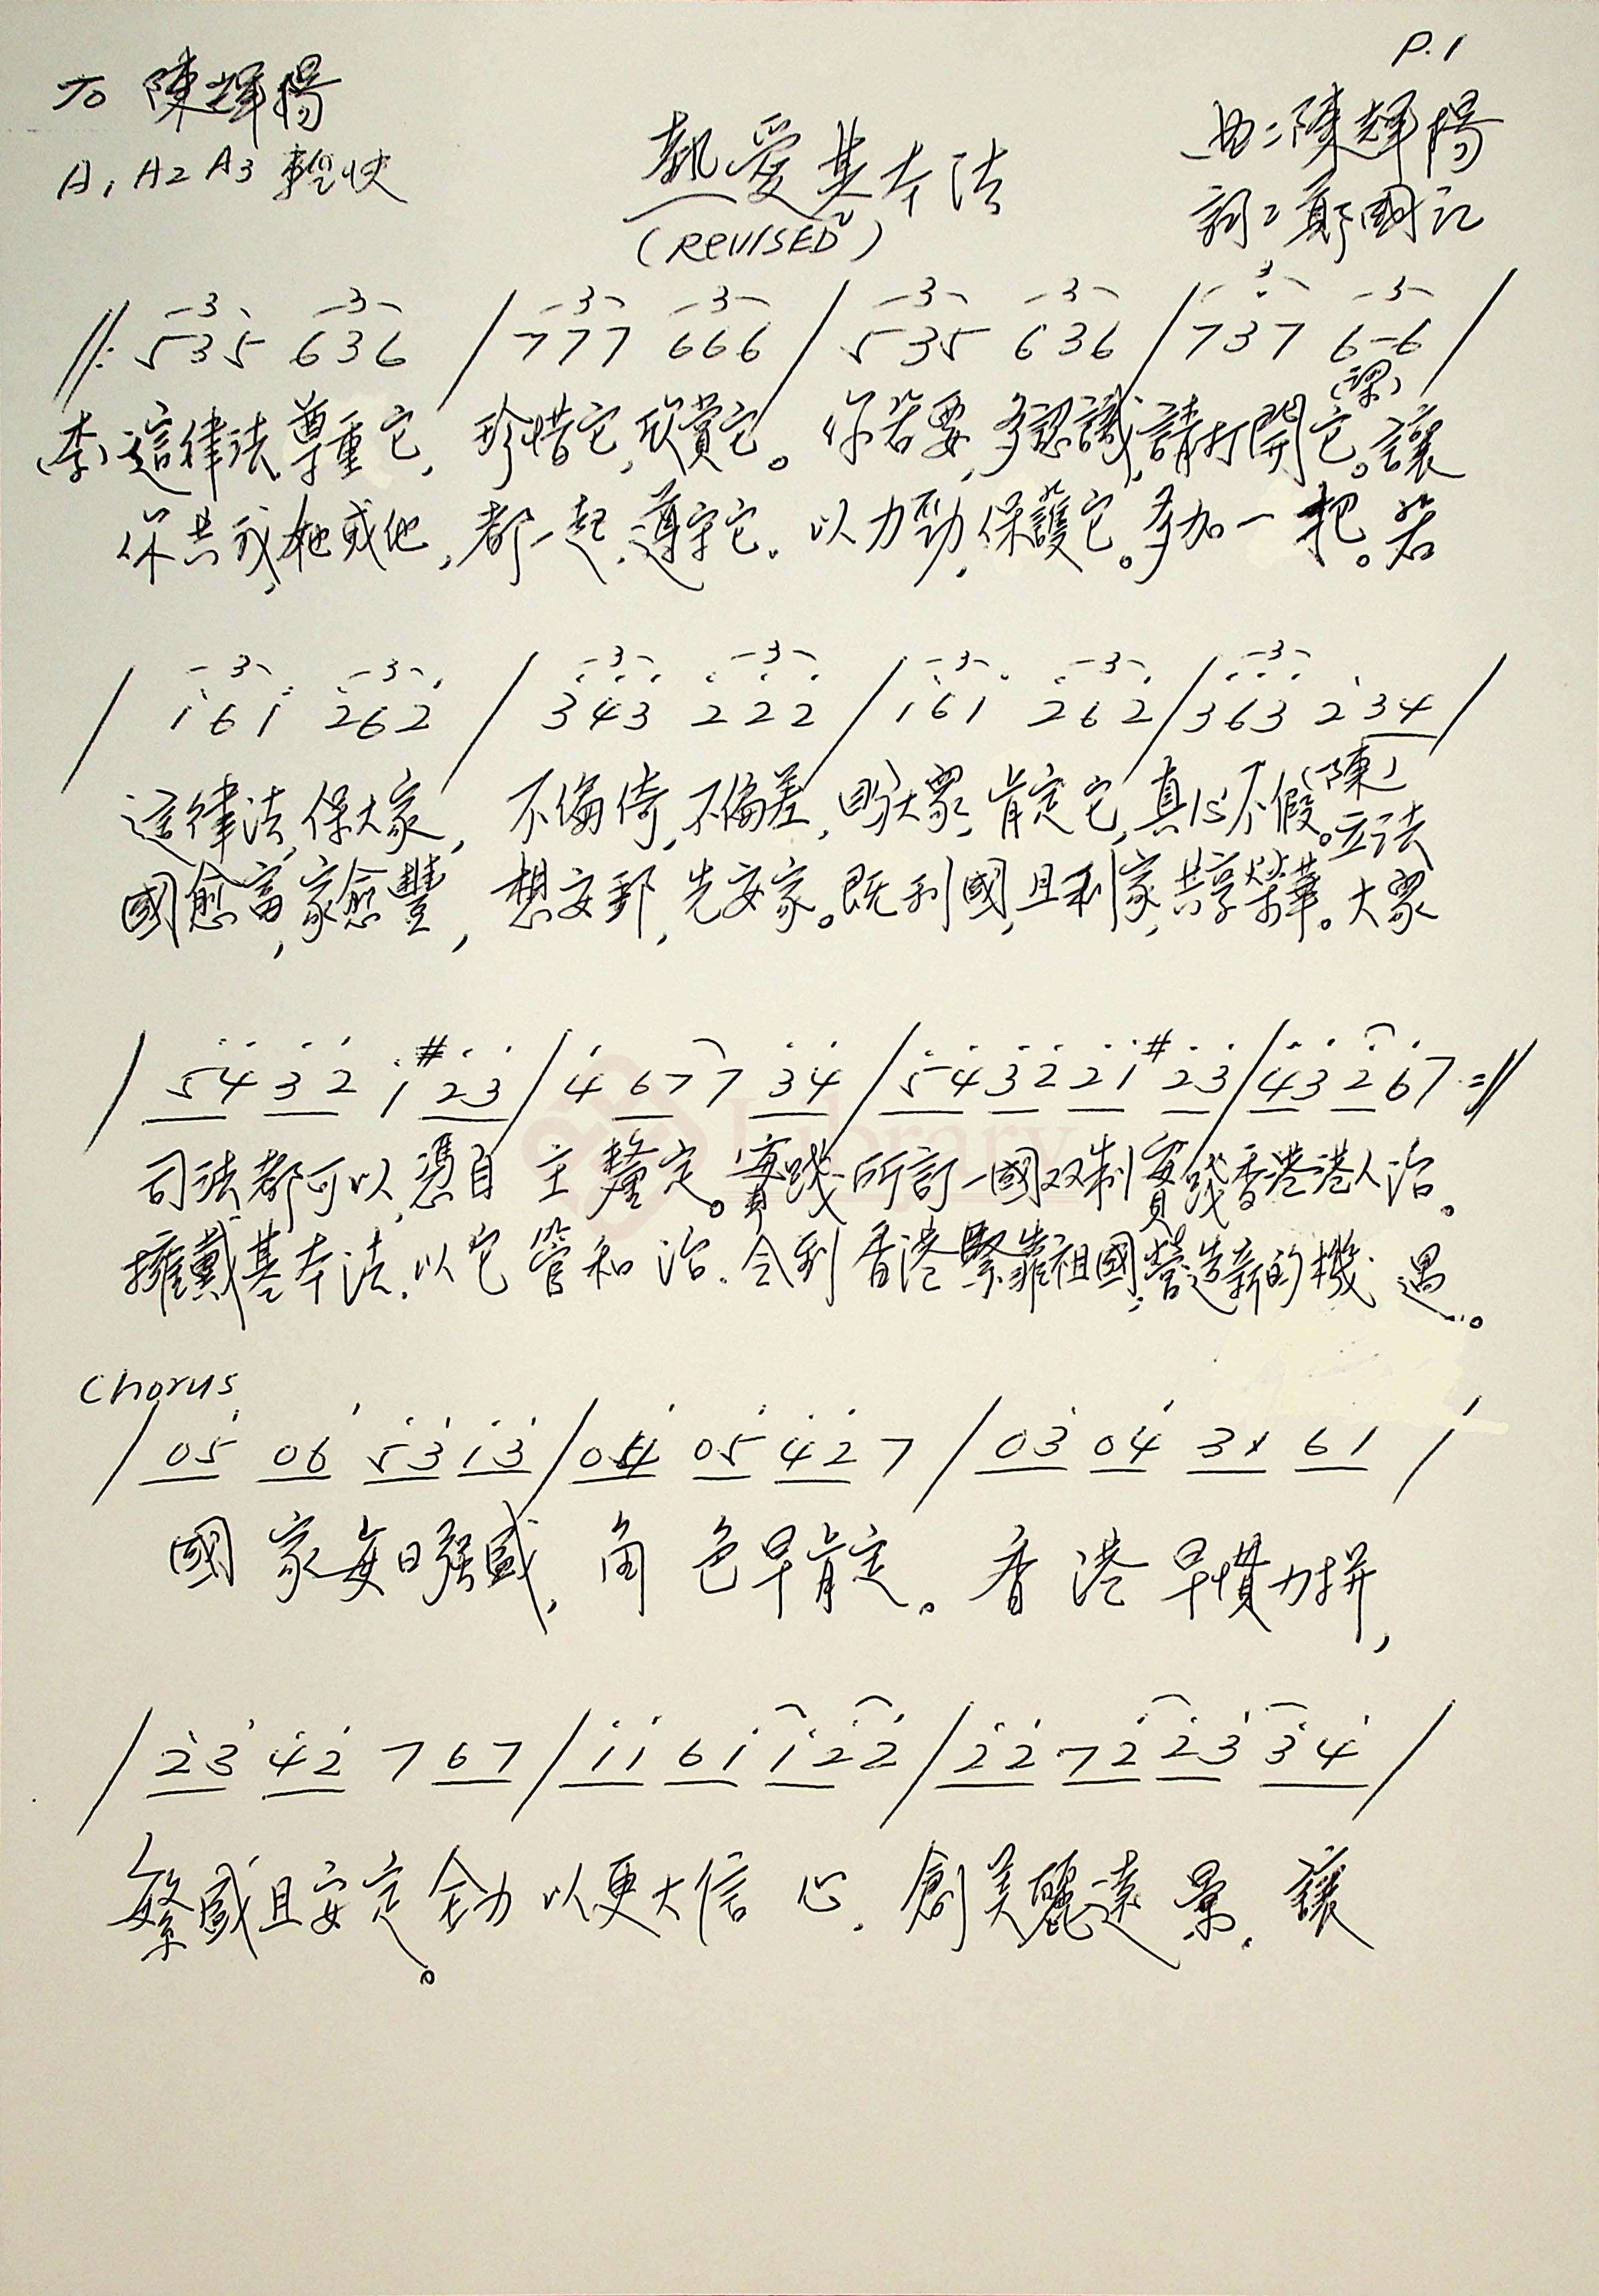 P.1
To 陳輝揚
曲：陳輝揚
A1 A2 A3 輕快
熱愛基本法
詞：鄭國江
(REVISED)
3 3 3 3 3 3 3 3
//: 535 636 / 777 666 / 535 636 / 737 6-6 /
(李)這律法,尊重它,珍惜它,欣賞它。你若要,多認識,請打開它。讓
你共我,她或他,都一起,遵守它。以力勁,保護它。多加一把。若
3 3 3 3 3 3 3
/ 161 262 / 343 222 / 161 262 / 363 2 34 /
這律法,保大家,不偏倚,不偏差,大眾,肯定它,真心不假。(陳)立法
國愈富,家愈豐,想安邦,先安家。既利國,且利家,共享榮華。大眾
/ 54 32 1 #23 / 4 67 7 34 / 54 32 21 #23 / 43 2 67 ://
司法都可以,憑自主釐定。實踐所訂一國双制實踐香港港人治。
擁戴基本法,以它管和治.令到香港緊靠祖國,營造新的機遇。
Chorus
/ 05 06 53 13 / 04 05 42 7 / 03 04 3x 61 /
國家每日强盛,角色早肯定。香港早慣力拼,
/ 23 42 7 67 / 11 61 12 2 / 22 72 23 34 /
繁盛且安定。全力以更大信心.創美麗遠景.讓
Library